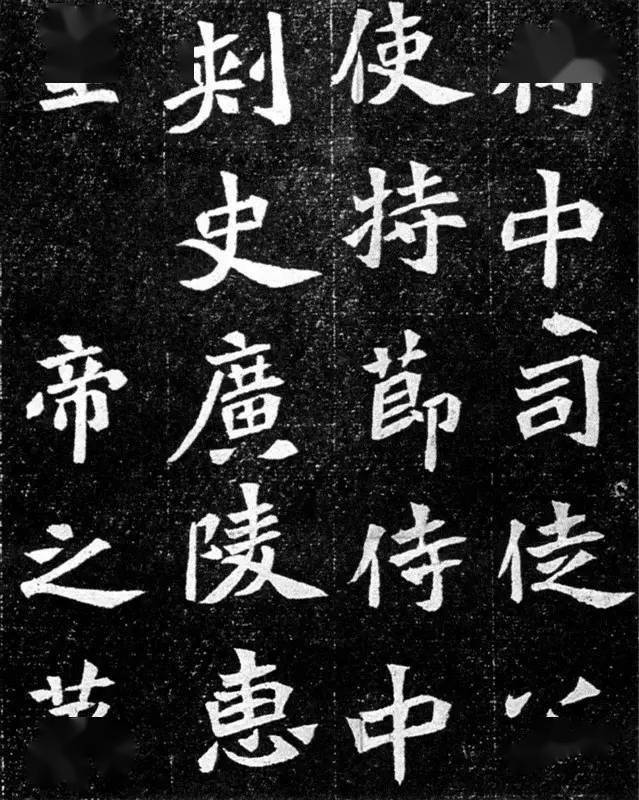 中司徒
使持節侍中
刺史廣陵惠
帝之